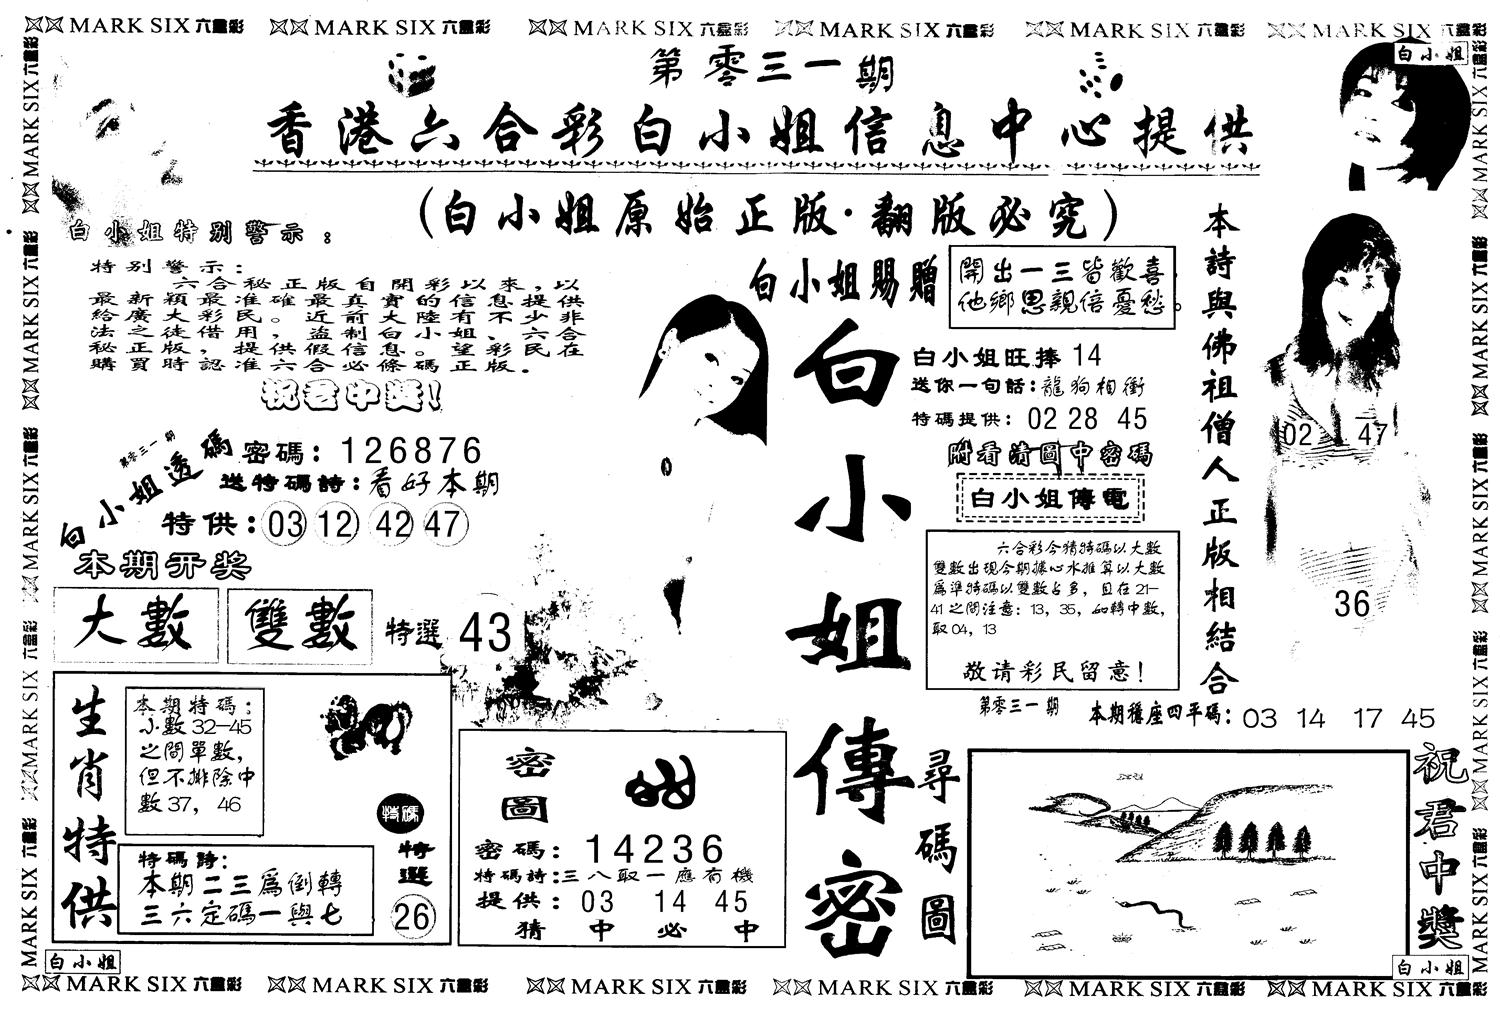 MARK SIX 六合彩 MARK SIX 六合彩 MARK SIX 六合彩 MARK SIX 六合彩 MARK SIX 六合彩 MARK SIX 六合彩
白小姐
第零三一期
香港六合彩白小姐信息中心提供
(白小姐原始正版·翻版必究)
白小姐特别警示：
特别警示：
六合秘正版自開彩以來,以
最新穎最准確最真實的信息提供
給廣大彩民。近前大陸有不少非
法之徒借用,盗制白小姐、六合
秘正版,提供假信息。望彩民在
購買時認准六合必條碼正版.
祝君中獎!
第零三一期
白小姐透碼
密碼：126876
送特碼詩：看好本期
特供：03 12 42 47
本期开奖
大數 雙數 特選 43
生肖特供
本期特碼：
小數32—45
之間單數,
但不排除中
數37，46
特碼
特選
26
特碼詩：
本期二三爲倒轉
三六定碼一與七
白小姐
密圖
密碼：14236
特碼詩：三八取一應有機
提供：03 14 45
猜中必中
白小姐傳密
白小姐賜贈
開出一三皆歡喜
他鄉思親倍憂愁。
白小姐旺捧 14
送你一句話：龍狗相衝
特碼提供：02 28 45
附看清圖中密碼
白小姐傳電
六合彩今猜特碼以大數
雙數出现今期據心水推算以大數
爲準特碼以雙數占多，且在21—
41之間注意：13，35，如轉中數，
取04，13
敬请彩民留意！
第零三一期
本期穩座四平碼：03 14 17 45
本詩與佛祖僧人正版相結合
02 47
36
尋碼圖
祝君中獎
白小姐
MARK SIX 六合彩 MARK SIX 六合彩 MARK SIX 六合彩 MARK SIX 六合彩 MARK SIX 六合彩 MARK SIX 六合彩
MARK SIX 六合彩 MARK SIX 六合彩 MARK SIX 六合彩 MARK SIX 六合彩 MARK SIX 六合彩
MARK SIX 六合彩 MARK SIX 六合彩 MARK SIX 六合彩 MARK SIX 六合彩 MARK SIX 六合彩